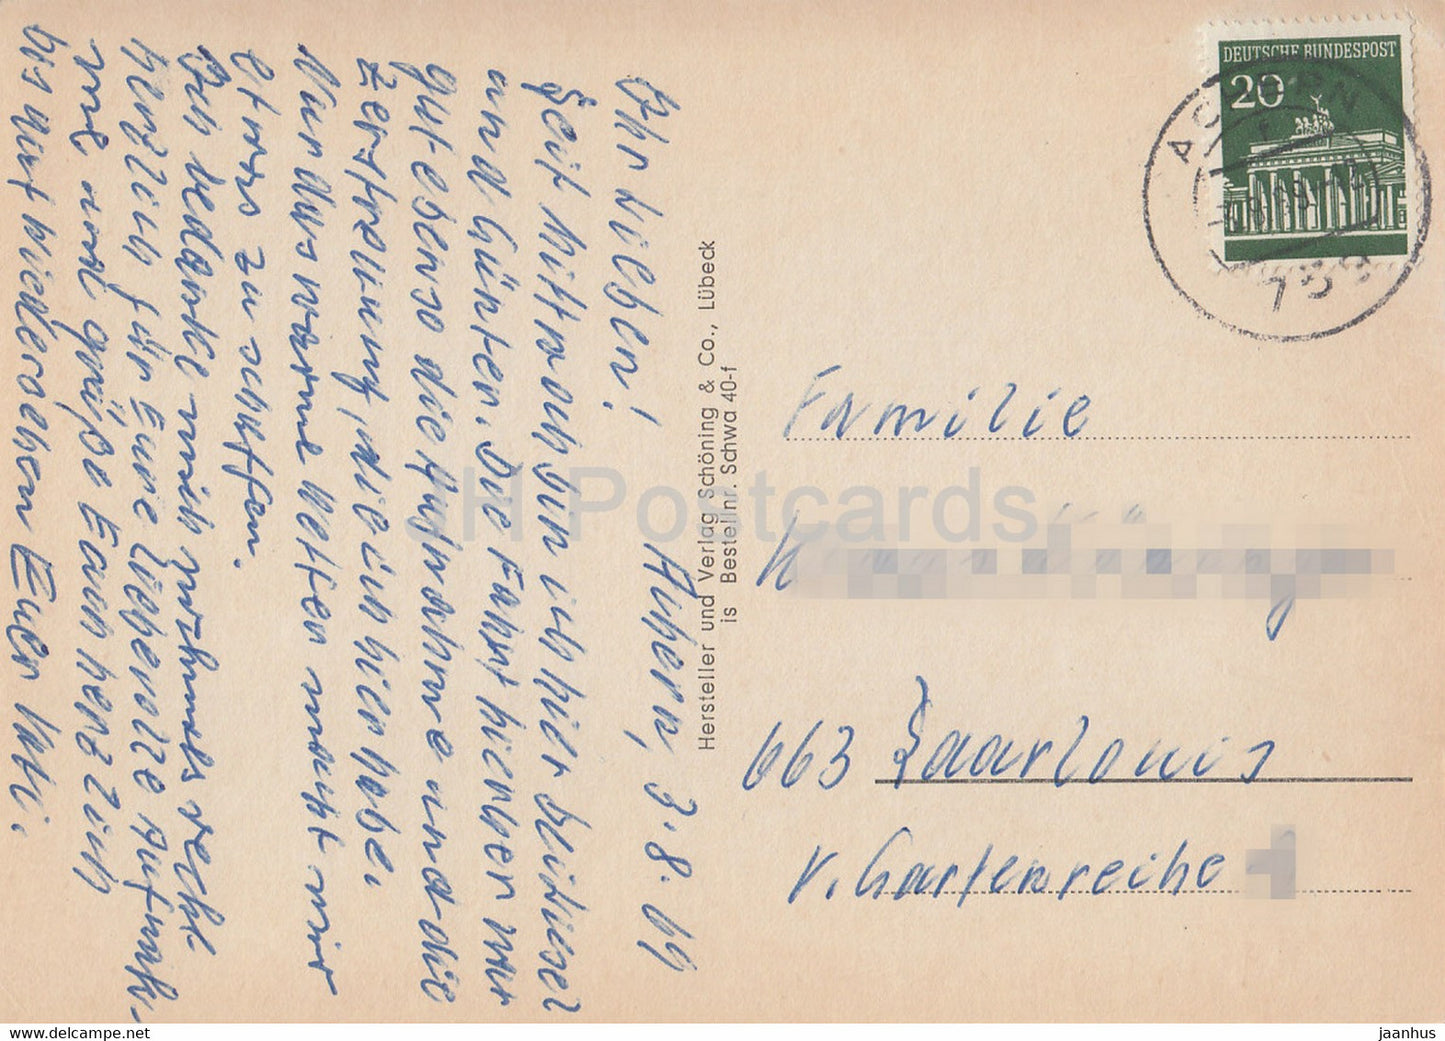 Achern, 3.8.69
Ihr Lieben!
Seit Mittwoch bin ich hier bei Gisel
und Günter. Die Fahrt hierher war
gut ebenso die Aufnahme und die
Zerstreuung, die ich hier habe.
Nur das warme Wetter macht mir
etwas zu schaffen.
Ich bedanke mich nochmals recht
herzlich für Eure liebevolle Aufnah-
me und grüße Euch herzlich
bis auf Wiedersehen Euer
Hersteller und Verlag Schöning & Co., Lübeck
is Bestellnr. Schwa 40-f
DEUTSCHE BUNDESPOST
20
ACHERN
Familie
663 Saarlouis
v. Gartenreihe
JH Postcards
jaanhus